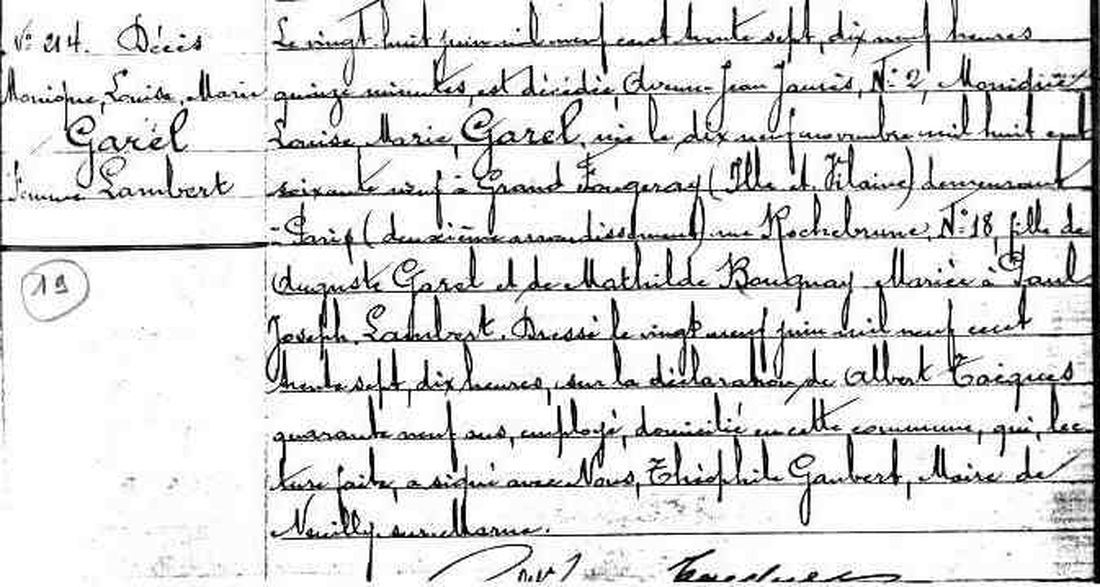 N° 214. Décès
Monique, Louise, Marie
Garel
Femme Lambert
19
Le vingt huit juin mil neuf cent trente sept, dix neuf heures
quinze minutes, est décédée, Avenue Jean Jaurès, N° 2, Monique
Louise, Marie, Garel, née le dix neuf novembre mil huit cent
soixante neuf à Grand Fougeray (Ille et Vilaine) demeurant
à Paris (deuxième arrondissement) rue Rochebrune, N° 18, fille de
Auguste Garel et de Mathilde Bouquay. Mariée à Paul
Joseph Lambert. Dressé le vingt neuf juin mil neuf cent
trente sept, dix heures, sur la déclaration de Albert Tacques
quarante neuf ans, employé, domicilié en cette commune, qui, lec
ture faite, a signé avec Nous, Théophile Gaubert, Maire de
Neuilly sur Marne.